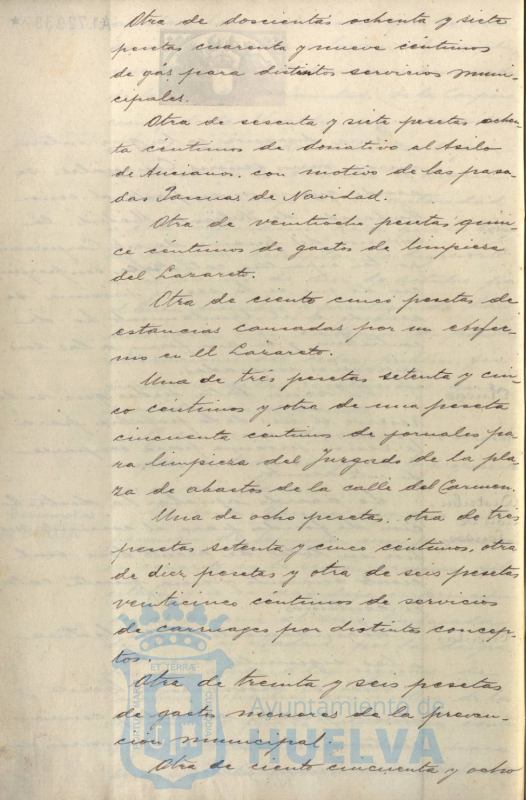 Otra de doscientas ochenta y siete
pesetas cuarenta y nueve céntimos
de gas para distintos servicios muni-
cipales.
Otra de sesenta y siete pesetas ochen-
ta céntimos de donativo al Asilo
de Ancianos, con motivo de las pasa-
das Pascuas de Navidad.
Otra de veintiocho pesetas quin-
ce céntimos de gastos de limpieza
del Lazareto.
Otra de ciento cinco pesetas de
estancias causadas por un enfer-
mo en el Lazareto.
Una de tres pesetas setenta y cin-
co céntimos y otra de una peseta
cincuenta céntimos de jornales pa-
ra limpieza del Juzgado de la pla-
za de abastos de la calle del Carmen.
Una de ocho pesetas, otra de tres
pesetas setenta y cinco céntimos, otra
de diez pesetas y otra de seis pesetas
veinticinco céntimos de servicios
de carruages por distintos concep-
tos.
Otra de treinta y seis pesetas
de gastos menores de la preven-
ción municipal.
Otra de ciento cincuenta y ocho
ET TERRÆ
Ayuntamiento de
HUELVA